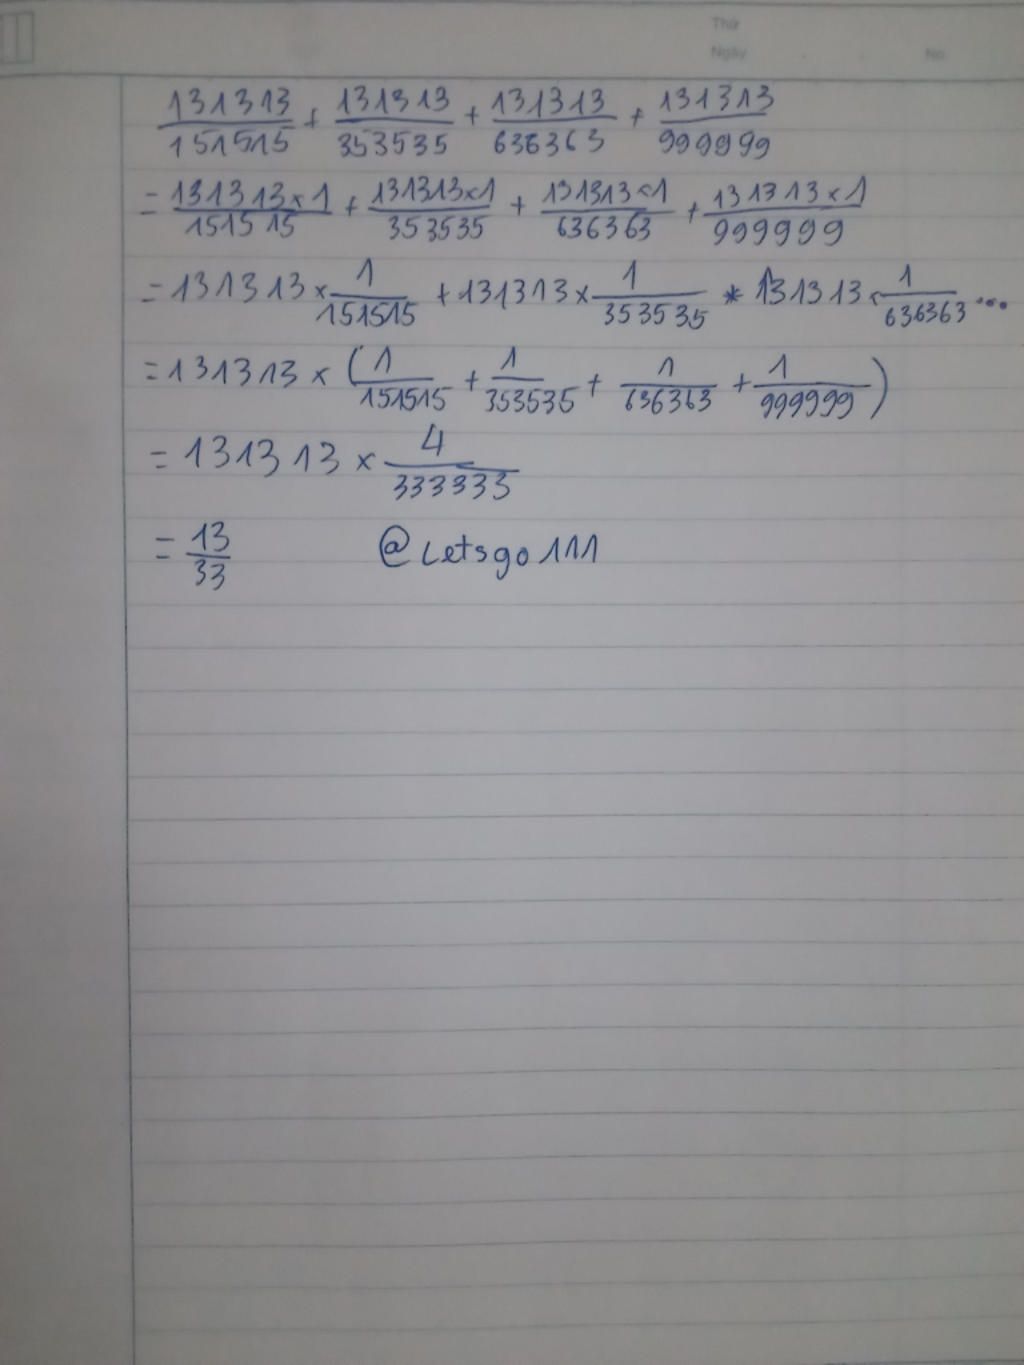 Thứ
Ngày No
131313/151515 + 131313/353535 + 131313/636363 + 131313/999999
= 131313×1/151515 + 131313×1/353535 + 131313×1/636363 + 131313×1/999999
= 131313 × 1/151515 + 131313 × 1/353535 * 131313 × 1/636363 ...
= 131313 × (1/151515 + 1/353535 + 1/636363 + 1/999999)
= 131313 × 4/333333
= 13/33 @Letsgo111